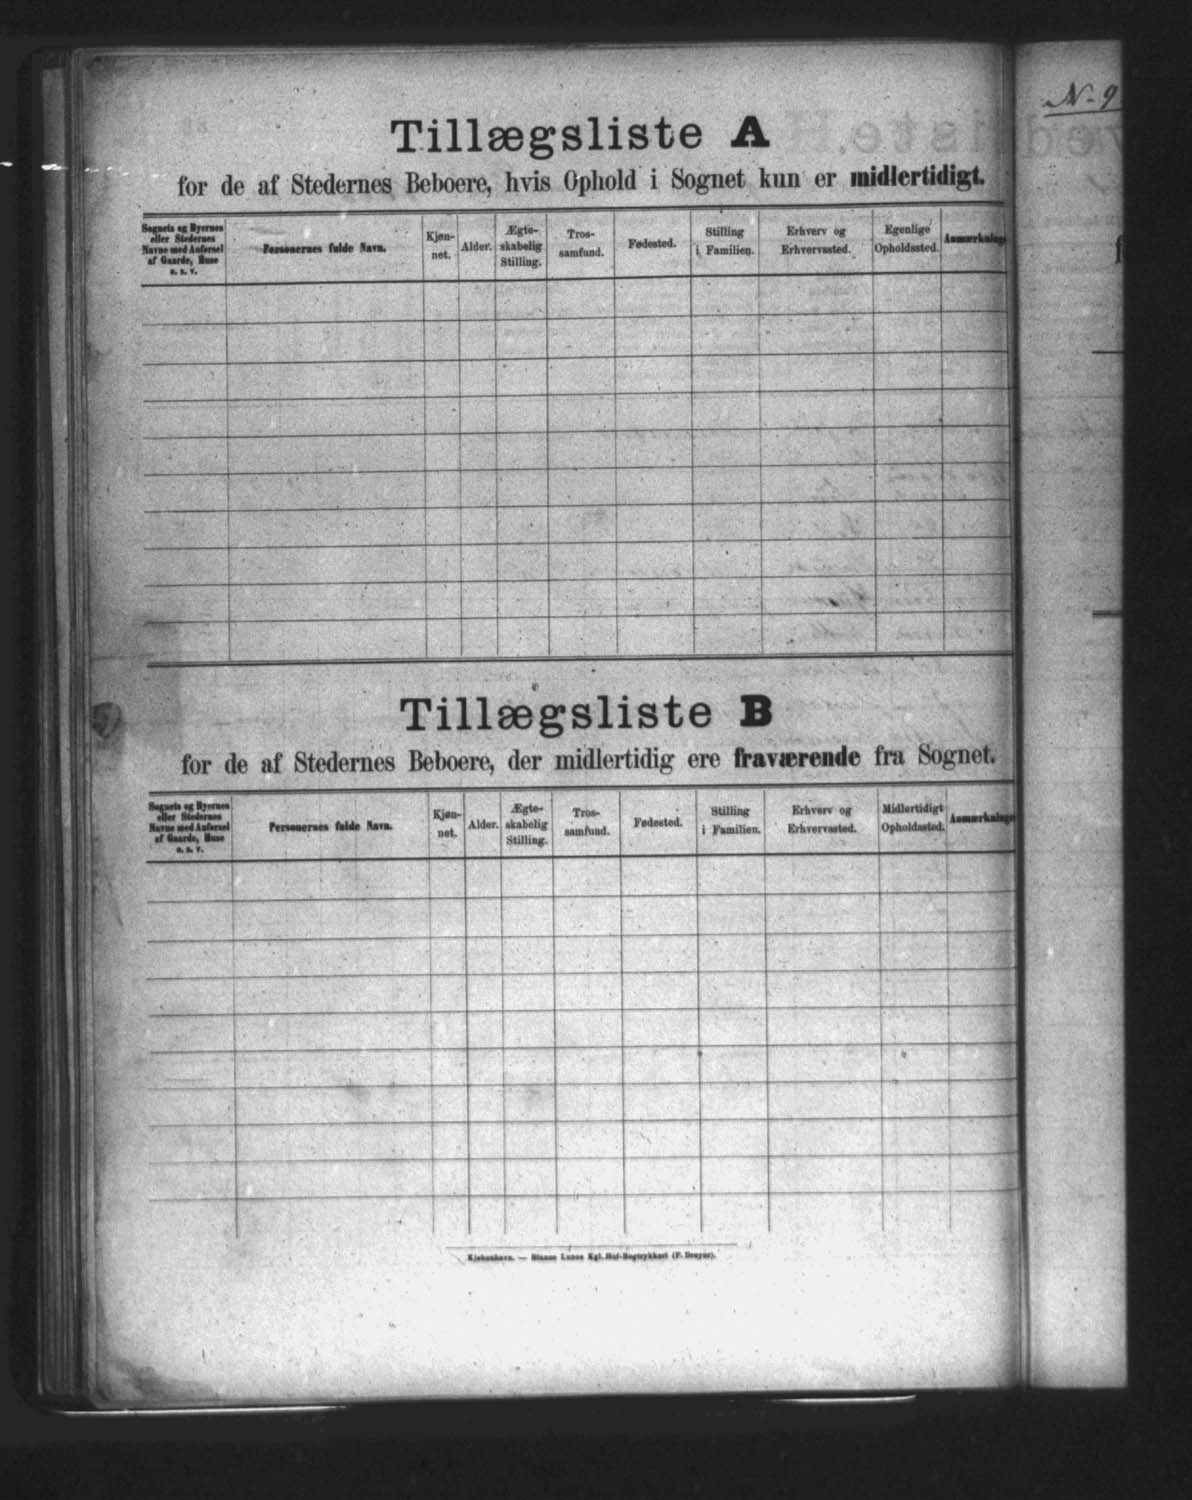 Tillægsliste A
for de af Stedernes Beboere, hvis Ophold i Sognet kun er midlertidigt.
Sognets og Byernes
eller Stedernes
Navne med Anførsel
af Gaarde, Huse
o. s. v.
Personernes fulde Navn.
Kjøn-
net.
Alder.
Ægte-
skabelig
Stilling.
Tros-
samfund.
Fødested.
Stilling
i Familien.
Erhverv og
Erhvervssted.
Egenlige
Opholdssted.
Tillægsliste B
for de af Stedernes Beboere, der midlertidig ere fraværende fra Sognet.
Sognets og Byernes
eller Stedernes
Navne med Anførsel
af Gaarde, Huse
o. s. v.
Personernes fulde Navn.
Kjøn-
net.
Alder.
Ægte-
skabelig
Stilling.
Tros-
samfund.
Fødested.
Stilling
i Familien.
Erhverv og
Erhvervssted.
Midlertidigt
Opholdssted.
Kjøbenhavn. — Bianco Lunos Kgl. Hof-Bogtrykkeri (F. Dreyer).
N. 9